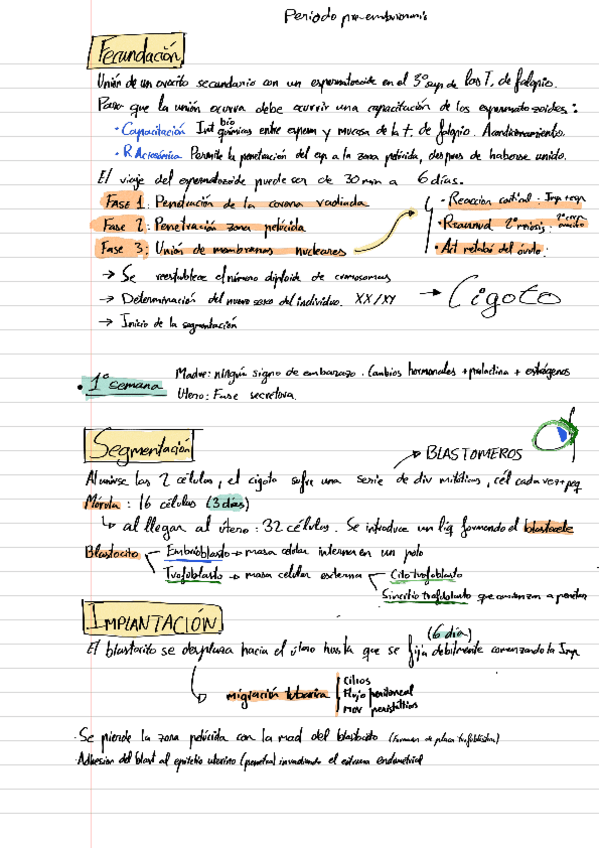 Periodo pre-embrionario
Fecundación
Unión de un ovocito secundario con un espermatozoide en el 3º sup de las T. de falopio.
Para que la unión ocurra debe ocurrir una capacitación de los espermatozoides:
· Capacitación Int bioquímicas entre esperm y mucosa de la t. de falopio. Acondicionamiento.
· R Acrosómica Permite la penetración del esp a la zona pelúcida, despues de haberse unido.
El viaje del espermatozoide puede ser de 30 min a 6 días.
FASE 1: Penetración de la corona radiada
Fase 2: Penetración zona pelúcida
Fase 3: Unión de membranas nucleares
· Reacción cortical: Imp + esp
· Reanud 2º meiosis:
· Act metabó del óvulo:
→ Se reestablece el número diploide de cromosomas
→ Determinación del nuevo sexo del individuo. XX/XY → Cigoto
→ Inicio de la segmentación
· 1º semana
Madre: ningún signo de embarazo. Cambios hormonales + prolactina + estrógenos
Utero: Fase secretora.
Segmentación
→ BLASTOMEROS
Al unirse las 2 células, el cigoto sufre una serie de div mitóticas, cél cada vez + peq
Mórula: 16 células (3 días)
↳ al llegar al útero: 32 células. Se introduce un líq formando el blastocele
Blastocito
Embrioblasto → masa celular interna en un polo
Trofoblasto → masa celular externa
Citotrofoblasto
Sincitiotrofoblasto que comienzan a penetrar
IMPLANTACIÓN
(6 día)
El blastocito se desplaza hacia el útero hasta que se fija debilmente comenzando la Imp.
migración tubarica
cilios
Flujo peritoneal
Mov peristálticos
· Se pierde la zona pelúcida con la mad del blastocito (forman de placa trofoblástica)
· Adhesion del blast al epitelio uterino (penetra) invadiendo el estroma endometrial